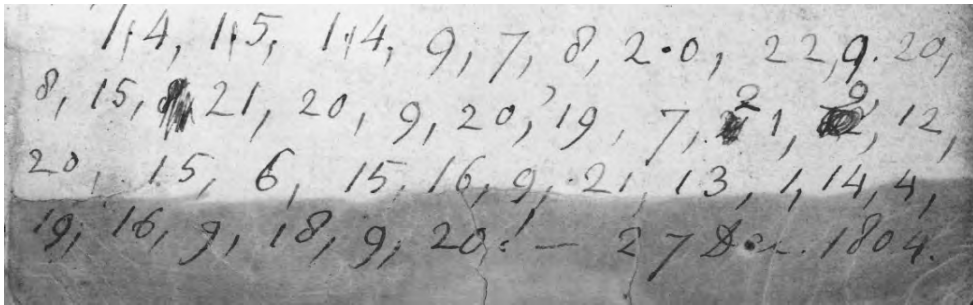 14, 15, 14, 9, 7, 8, 2·0, 22, 9. 20,
8, 15, 21, 20, 9, 20, 19, 7, 21, 9, 12,
20, 15, 6, 15, 16, 9, 21, 13, 1, 14, 4,
19, 16, 9, 18, 9, 20! — 27 Dec. 1804.